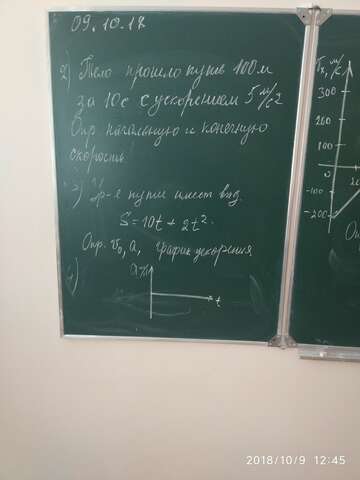 09.10.18
2) Тело прошло путь 100 м
за 10 с с ускорением 5 м/с2
Опр. начальную и конечную
скорость!
3) Ур-е пути имеет вид.
S = 10t + 2t².
Опр. v₀, a, график ускорения
4)
t
м/с
300
200
100
0
-100
-200
2018/10/9 12:45